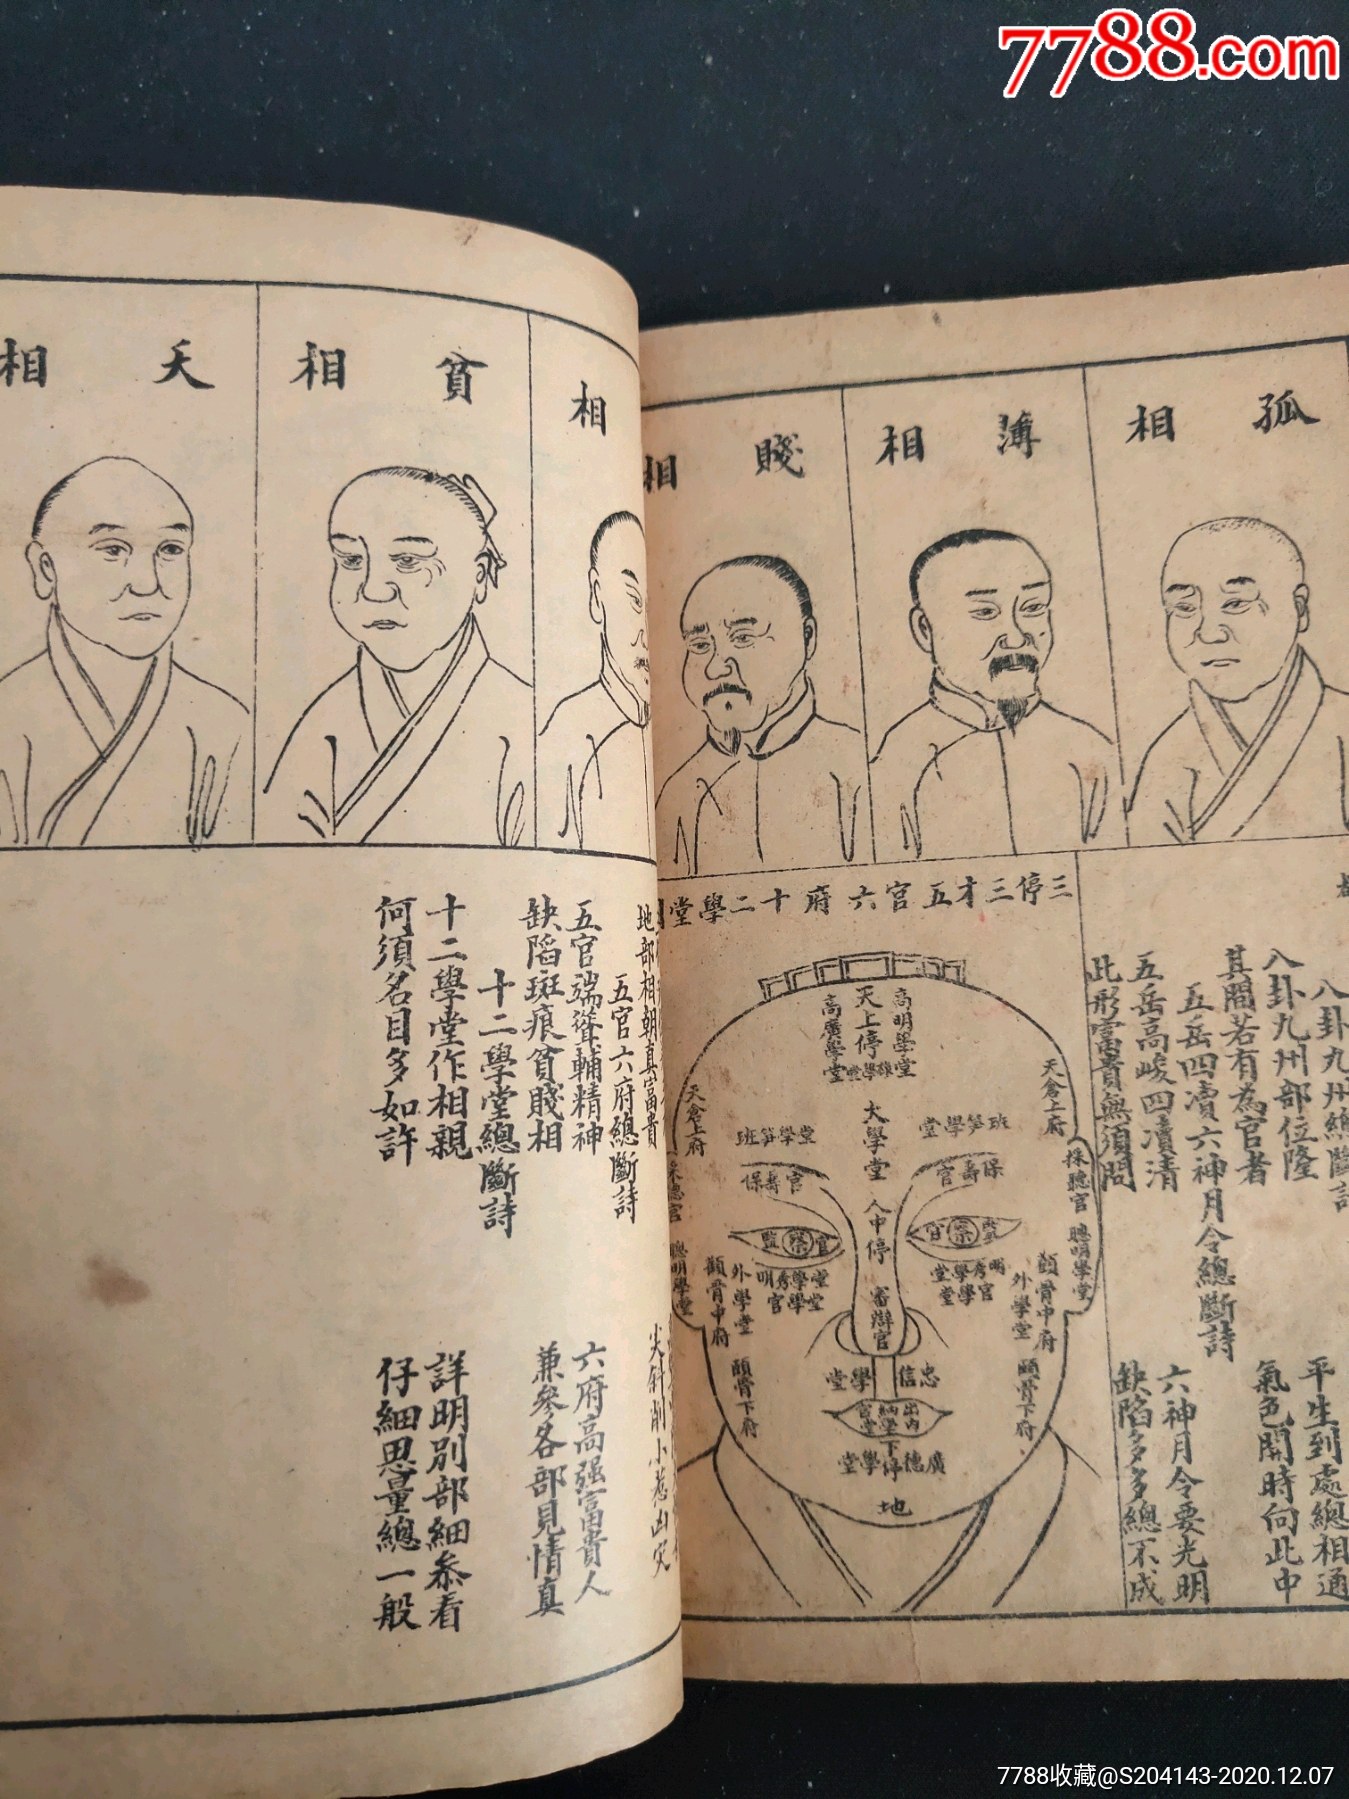 7788.com
孤相
薄相
賤相
相
貧相
夭相
八卦九州總斷詩
八卦九州部位隆
平生到處總相通
其間若有為官者
氣色開時向此中
五岳四瀆六神月令總斷詩
五岳高峻四瀆清
六神月令要光明
此形富貴無須問
缺陷多多總不成
三停三才五官六府十二學堂
高明學堂
天上停
高廣學堂
天倉上府
天倉上府
大學堂
班笋學堂
班笋學堂
保壽官
保壽官
採聽官
採聽官
人中停
監察官
聰明學堂
聰明學堂
明秀學堂
明秀學堂
官學堂
官學堂
顴骨中府
顴骨中府
外學堂
外學堂
審辨官
頤骨下府
頤骨下府
忠信學堂
出納官
內學堂
下停
廣德學堂
地
地部相朝真富貴
尖斜削小惹凶災
五官六府總斷詩
五官端聳輔精神
六府高强富貴人
缺陷斑痕貧賤相
兼參各部見情真
十二學堂總斷詩
十二學堂作相親
詳明別部細叅看
何須名目多如許
仔細思量總一般
7788收藏@S204143-2020.12.07